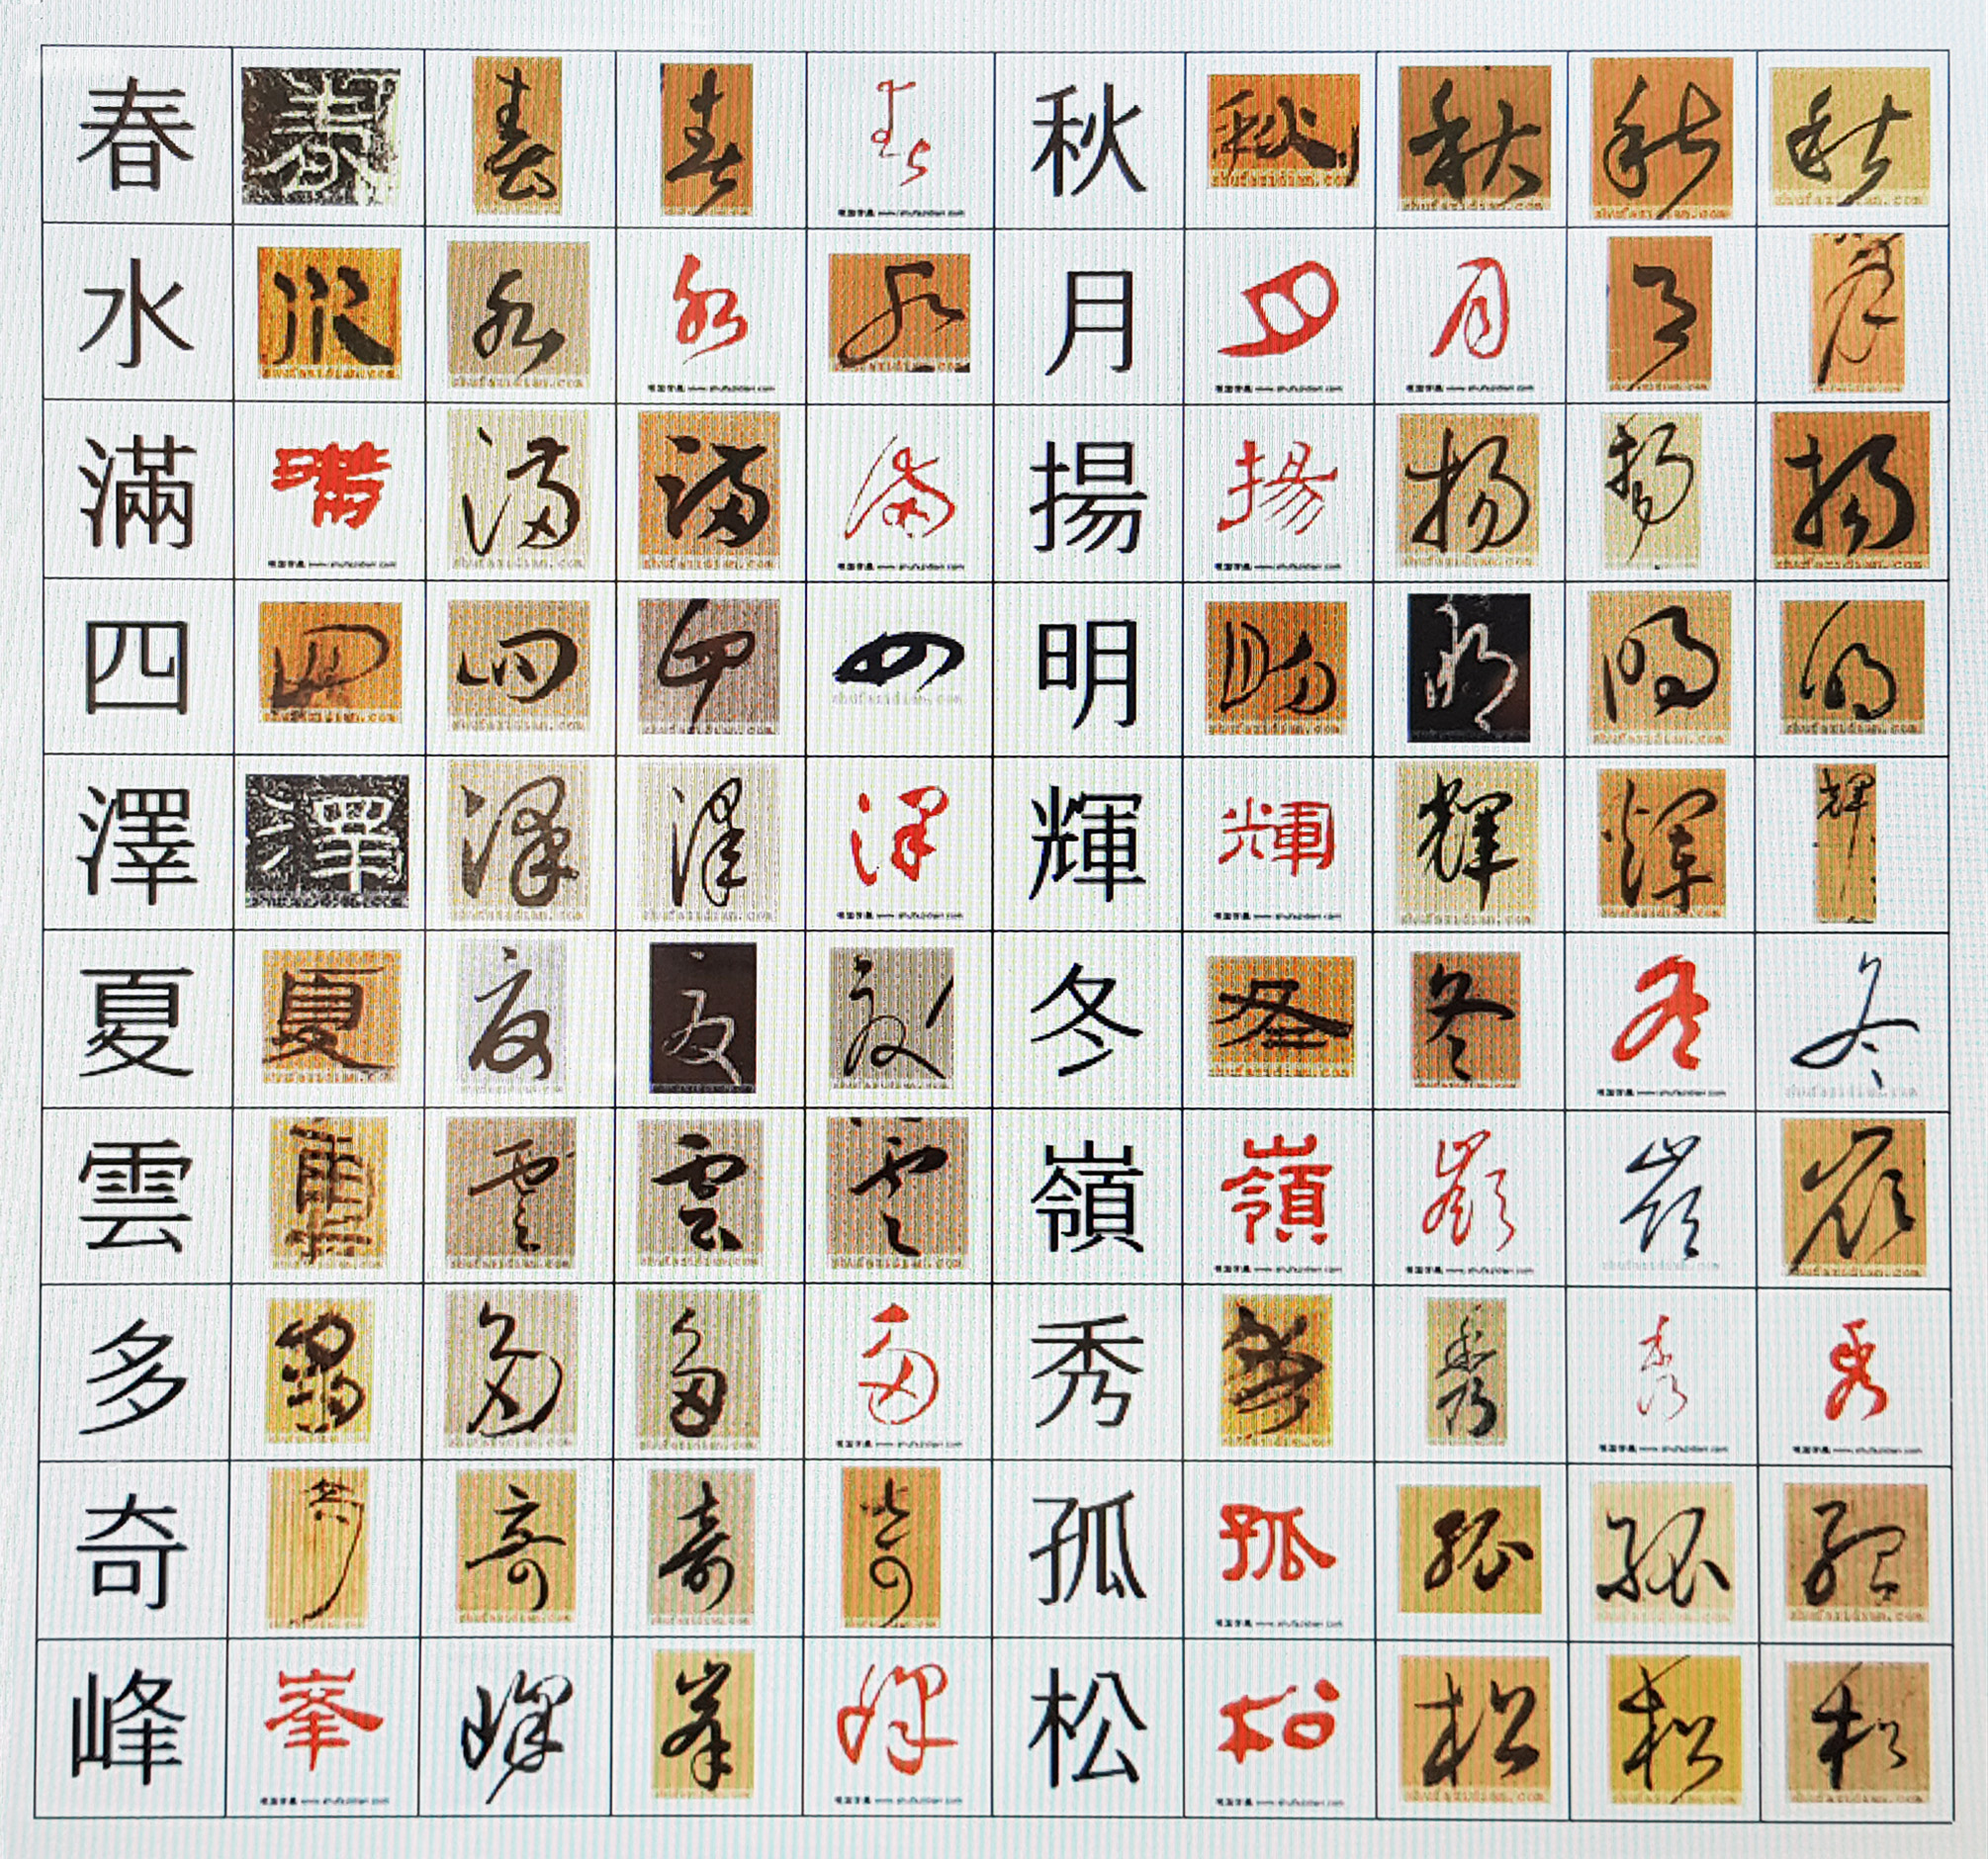 春 春 春 春 春 秋 秋 秋 秋 秋
水 水 水 水 水 月 月 月 月 月
滿 滿 滿 滿 滿 揚 揚 揚 揚 揚
四 四 四 四 四 明 明 明 明 明
澤 澤 澤 澤 澤 輝 輝 輝 輝 輝
夏 夏 夏 夏 夏 冬 冬 冬 冬 冬
雲 雲 雲 雲 雲 嶺 嶺 嶺 嶺 嶺
多 多 多 多 多 秀 秀 秀 秀 秀
奇 奇 奇 奇 奇 孤 孤 孤 孤 孤
峰 峯 峰 峯 峰 松 松 松 松 松